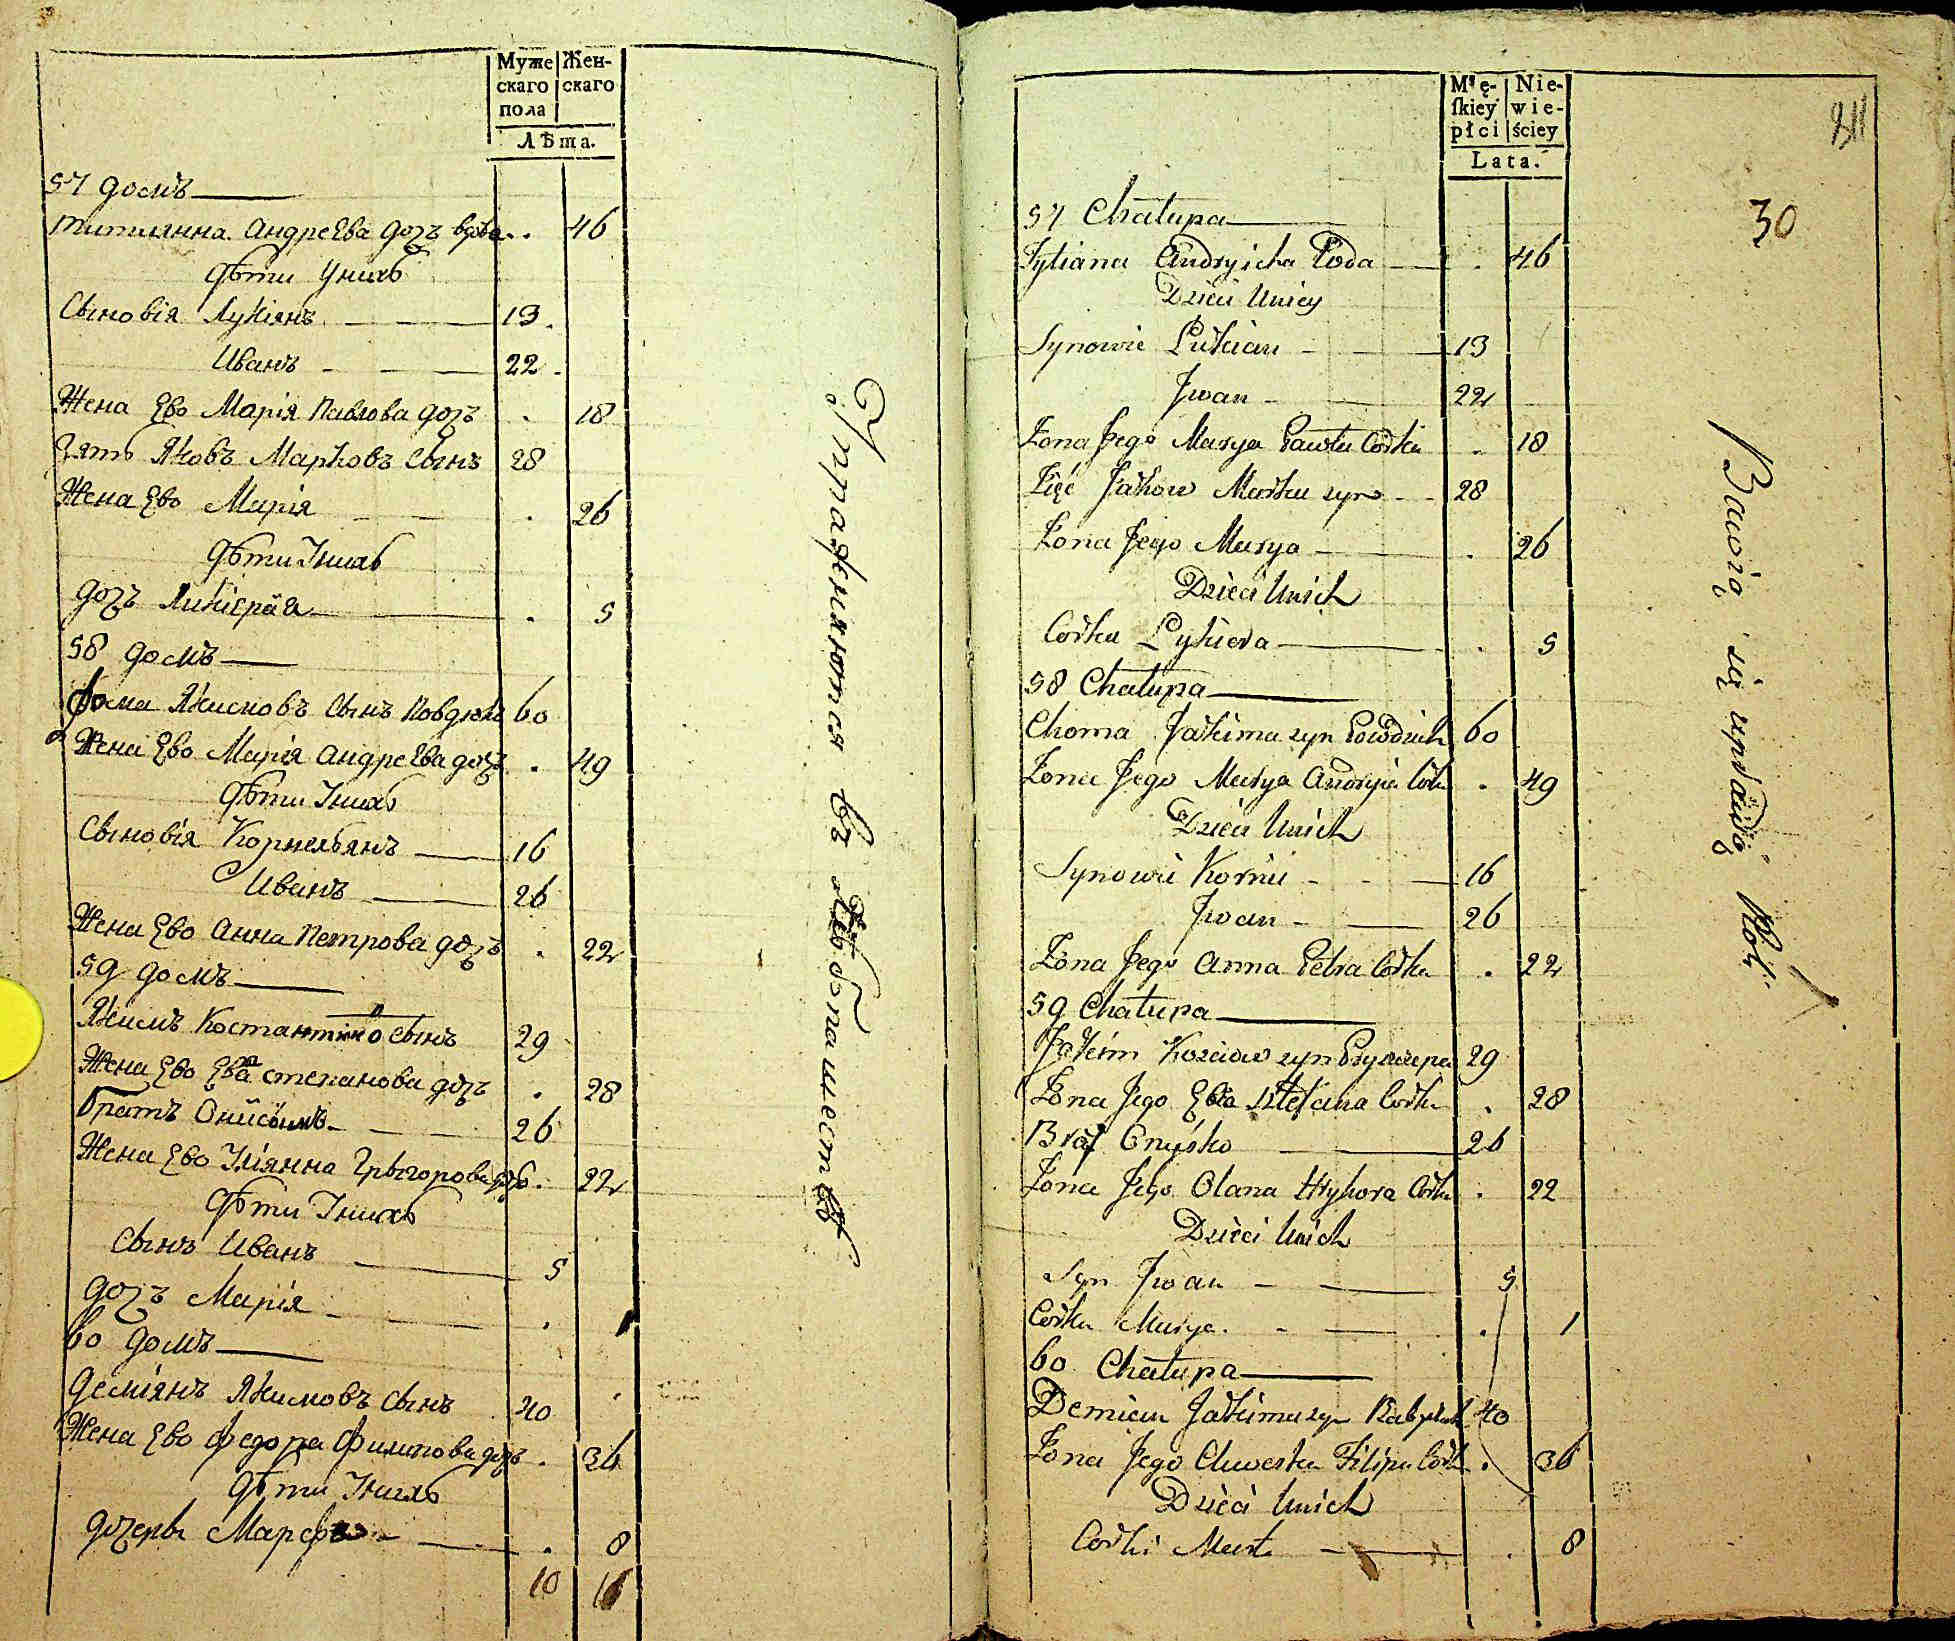 Муже Жен-
скаго скаго
пола
Лѣта.
57 домъ
Титиянна Андреева дочъ вдова 46
Дѣти Унихъ
Сыновія Лукіянъ 13
Иванъ 22
Жена Ево Марія Павлова дочъ 18
Зять Яковъ Марковъ Сынъ 28
Жена Ево Марія 26
Дѣти Унихъ
дочъ 5
58 домъ
Фома Якимовъ Сынъ 60
Жена Ево Марія Андреева дочъ 49
Дѣти Унихъ
Сыновія Корнельянъ 16
Иванъ 26
Жена Ево Анна Петрова дочъ 22
59 домъ
Якимъ Сынъ 29
Жена Ево Ева степанова дочъ 28
братъ 26
Жена Ево Уліянна Грыгорова дочъ 22
Дѣти Унихъ
Сынъ Иванъ 5
дочъ Марія 1
60 домъ
Деміянъ Якимовъ Сынъ 40
Жена Ево Федора дочъ 36
Дѣти Унихъ
дочеры 8
10
Упражняются въ
Mę- Nie-
skiey wie-
płci ściey
Lata.
30
57 Chałupa
Tytiana 46
Dzieci Unicy
Synowie Łukian 13
Jwan 22
Żona Jego Marya Pawła Corka 18
Zięć Jakow Marka syn 28
Żona Jego Marya 26
Dzieci Unich
Corka Łykiera 5
58 Chałupa
Choma Jakima syn 60
Żona Jego Marya Andryia Corka 49
Dzieci Unich
Synowie Korniy 16
Jwan 26
Żona Jego Anna Petra Corka 22
59 Chałupa
Jakim syn 29
Żona Jego Ewa Stefana Corka 28
Brat Onyśko 26
Żona Jego Olana Hryhora Corka 22
Dzieci Unich
Syn Jwan 5
Corka Marya 1
60 Chałupa
Demian Jakima syn 40
Żona Jego Chweska Filipa Corka 36
Dzieci Unich
Corki 8
Bawią się uprawą Roli